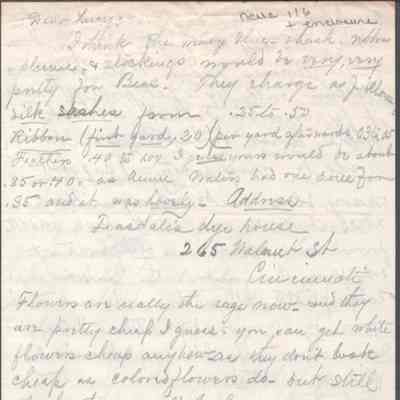 Dear Lucy:
+ enclosure
I think the navy blue
sleeves, & stockings would be very, very
pretty for Bess. They charge as follows
silk sashes from .25 to .50
Ribbon (first yard, 20) (per yard afterwards, 03 to 05
Feathers .40 to I guess yours would be about
.35 or .40 - as Annie had one done for
.35 and it was lovely - Address
dye house
265 Walnut St
Cincinnati
Flowers are really the rage now - and they
are pretty cheap I guess - you can get white
flowers cheap anyhow as they don't look
cheap as colored flowers do - but still